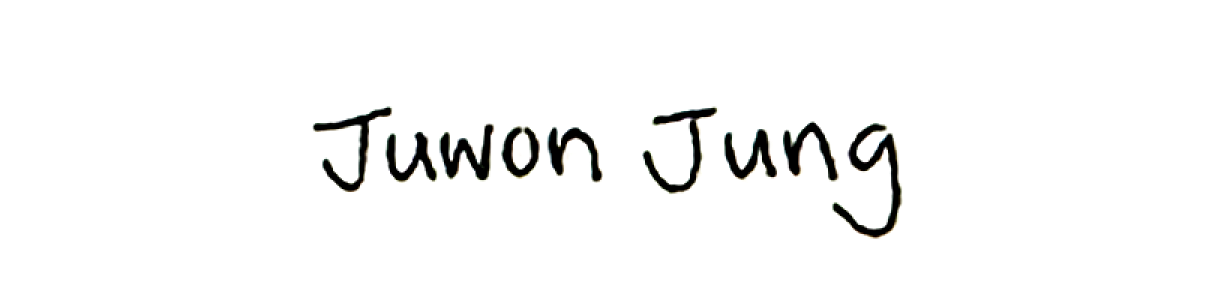 Juwon Jung